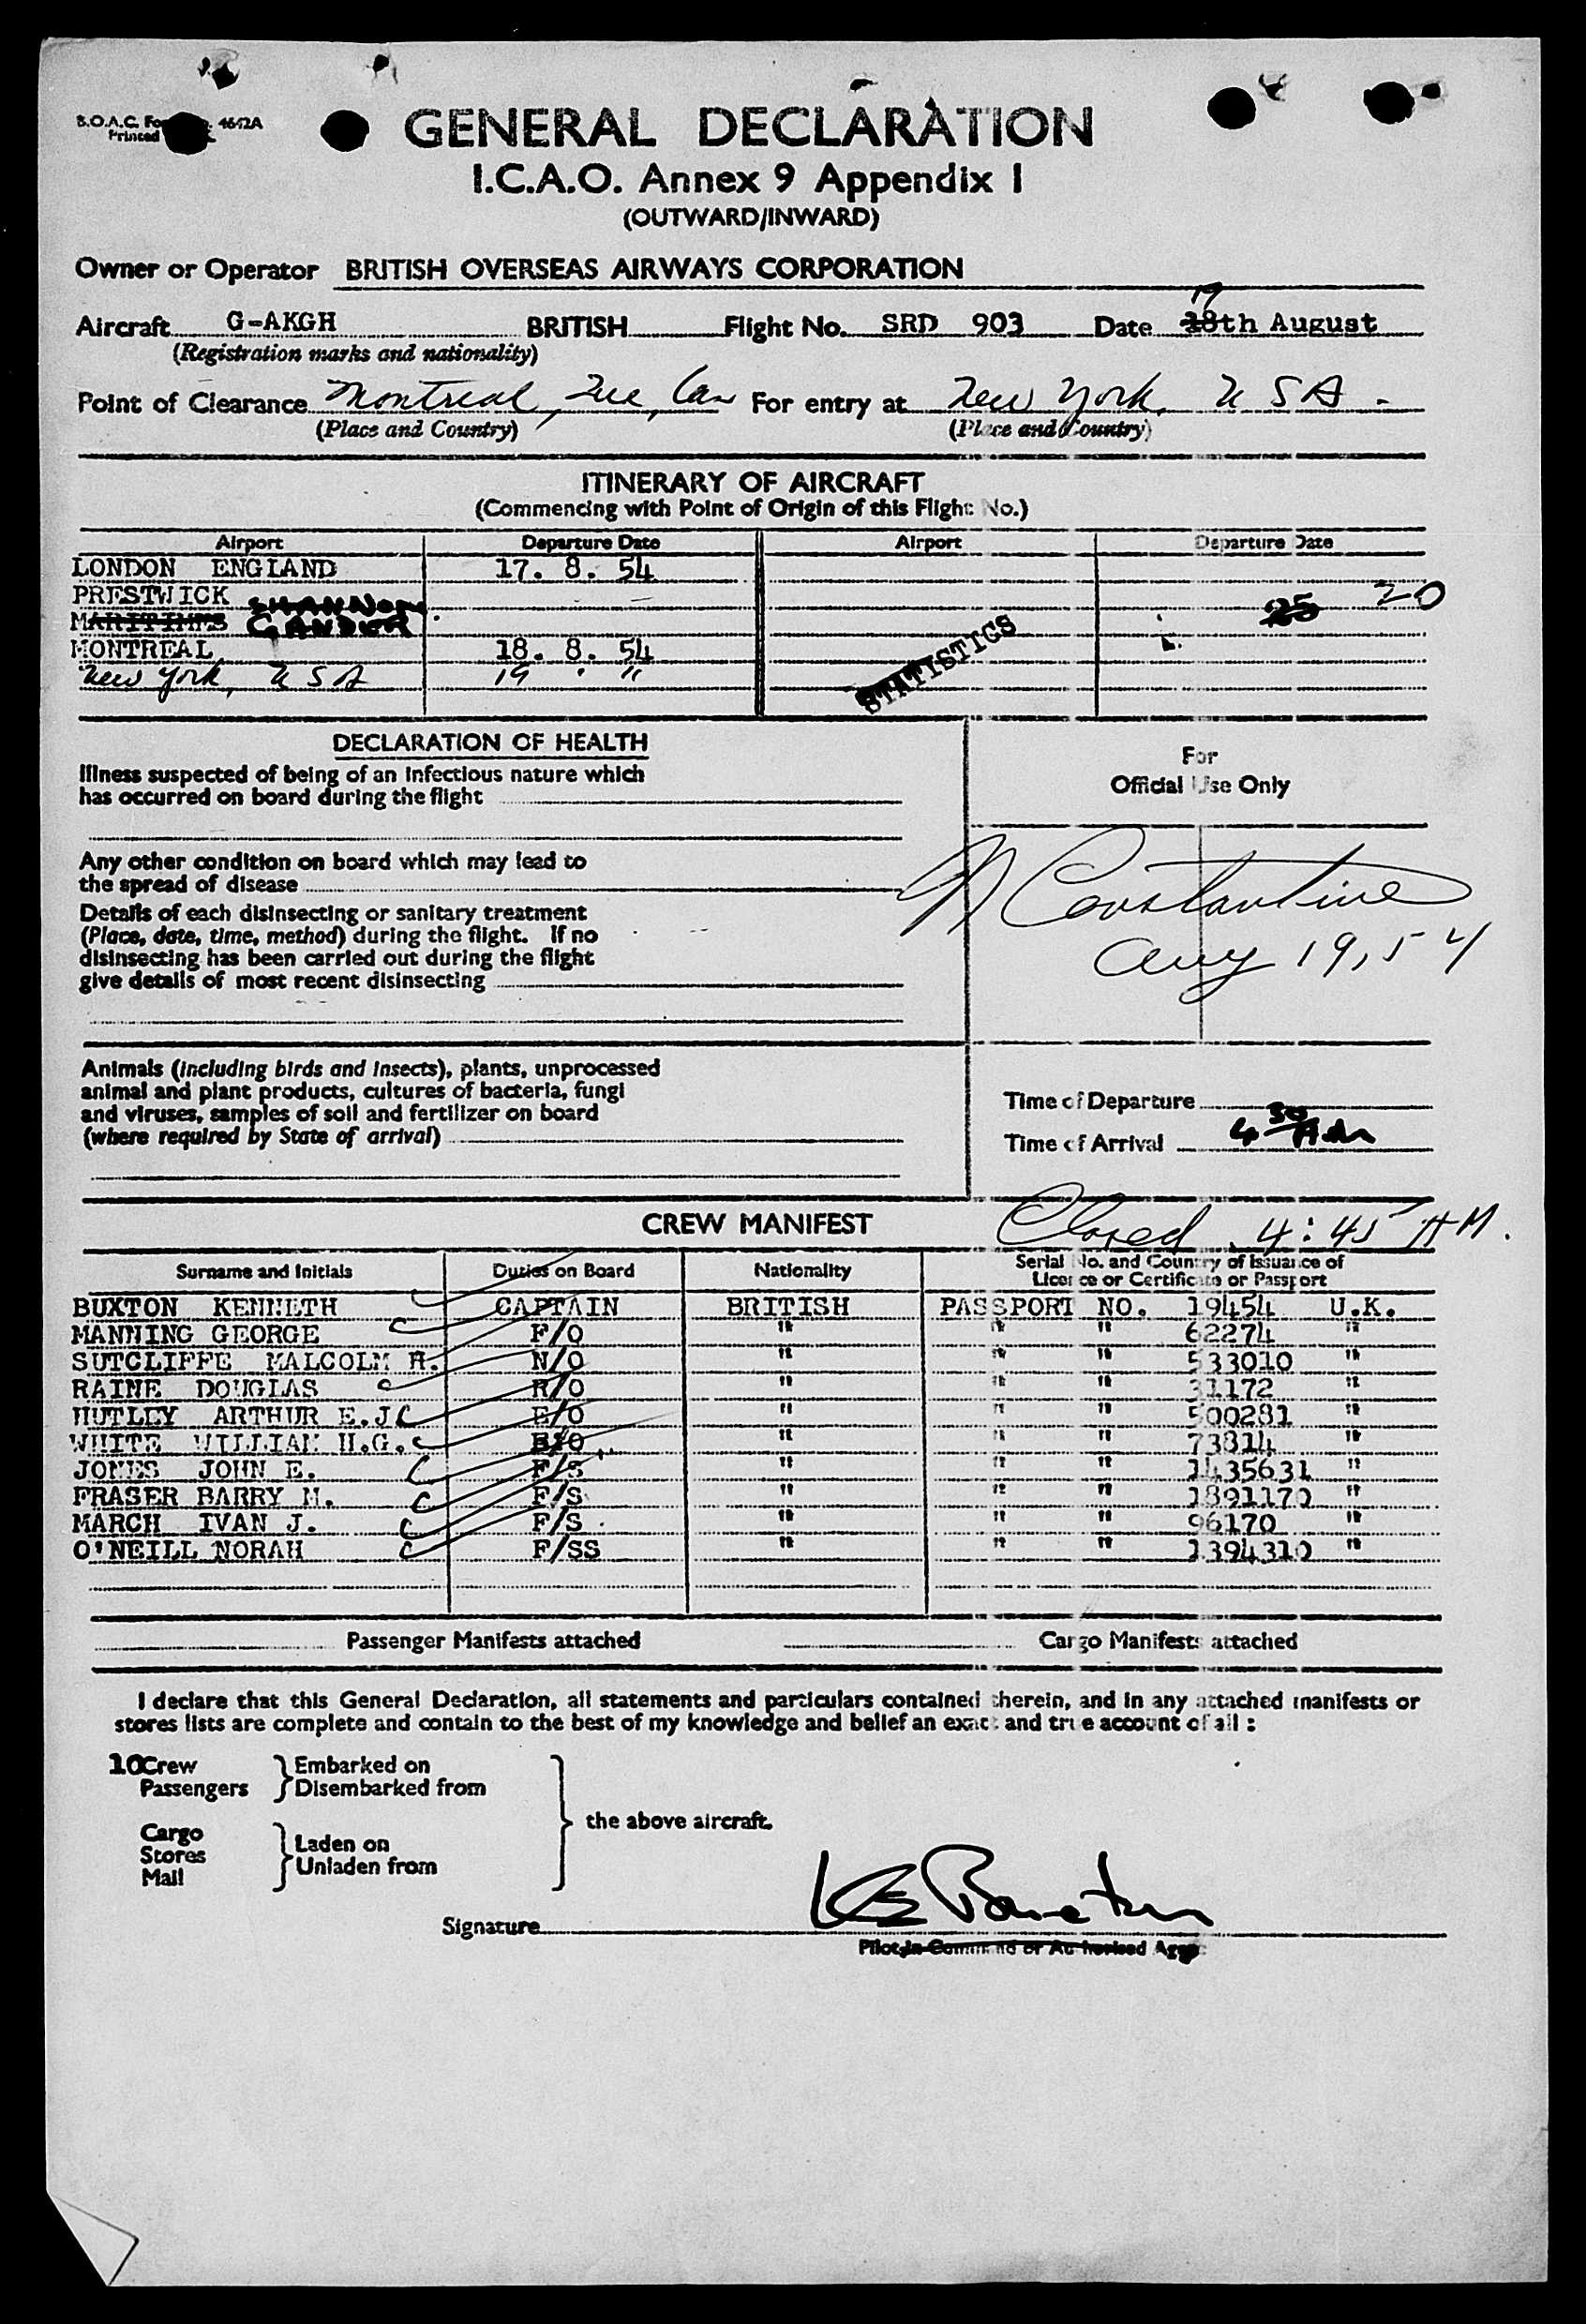 B.O.A.C. Fo 4642A
Printed
GENERAL DECLARATION
I.C.A.O. Annex 9 Appendix I
(OUTWARD/INWARD)
Owner or Operator BRITISH OVERSEAS AIRWAYS CORPORATION
19
Aircraft G-AKGH BRITISH Flight No. SRD 903 Date 18th August
(Registration marks and nationality)
Point of Clearance Montreal, Que, Can For entry at New York, U S A -
(Place and Country) (Place and Country)
ITINERARY OF AIRCRAFT
(Commencing with Point of Origin of this Flight No.)
Airport Departure Date Airport Departure Date
LONDON ENGLAND 17. 8. 54
PRESTWICK SHANNON 25 20
MARITIMES GANDER
MONTREAL 18. 8. 54
New York, U S A 19 " "
STATISTICS
DECLARATION OF HEALTH
For
Official Use Only
Illness suspected of being of an infectious nature which
has occurred on board during the flight
Any other condition on board which may lead to
the spread of disease
Constantine
Aug 19, 54
Details of each disinsecting or sanitary treatment
(Place, date, time, method) during the flight. If no
disinsecting has been carried out during the flight
give details of most recent disinsecting
Animals (including birds and insects), plants, unprocessed
animal and plant products, cultures of bacteria, fungi
and viruses, samples of soil and fertilizer on board
(where required by State of arrival)
Time of Departure
Time of Arrival 4 30 AM
CREW MANIFEST Closed 4:45 AM.
Surname and Initials Duties on Board Nationality Serial No. and Country of Issuance of
Licence or Certificate or Passport
BUXTON KENNETH CAPTAIN BRITISH PASSPORT NO. 19454 U.K.
MANNING GEORGE F/O " " " 62274 "
SUTCLIFFE MALCOLM H. N/O " " " 533010 "
RAINE DOUGLAS R/O " " " 31172 "
HUTLEY ARTHUR E.J E/O " " " 500281 "
WHITE WILLIAM H.G. E/O " " " 73814 "
JONES JOHN E. F/S " " " 1435631 "
FRASER BARRY M. F/S " " " 1891170 "
MARCH IVAN J. F/S " " " 96170 "
O'NEILL NORAH F/SS " " " 1394310 "
Passenger Manifests attached Cargo Manifests attached
I declare that this General Declaration, all statements and particulars contained therein, and in any attached manifests or
stores lists are complete and contain to the best of my knowledge and belief an exact and true account of all :
10 Crew Embarked on
Passengers Disembarked from
the above aircraft.
Cargo
Stores
Mail
Laden on
Unladen from
Signature
Pilot-in-Command or Authorised Agent